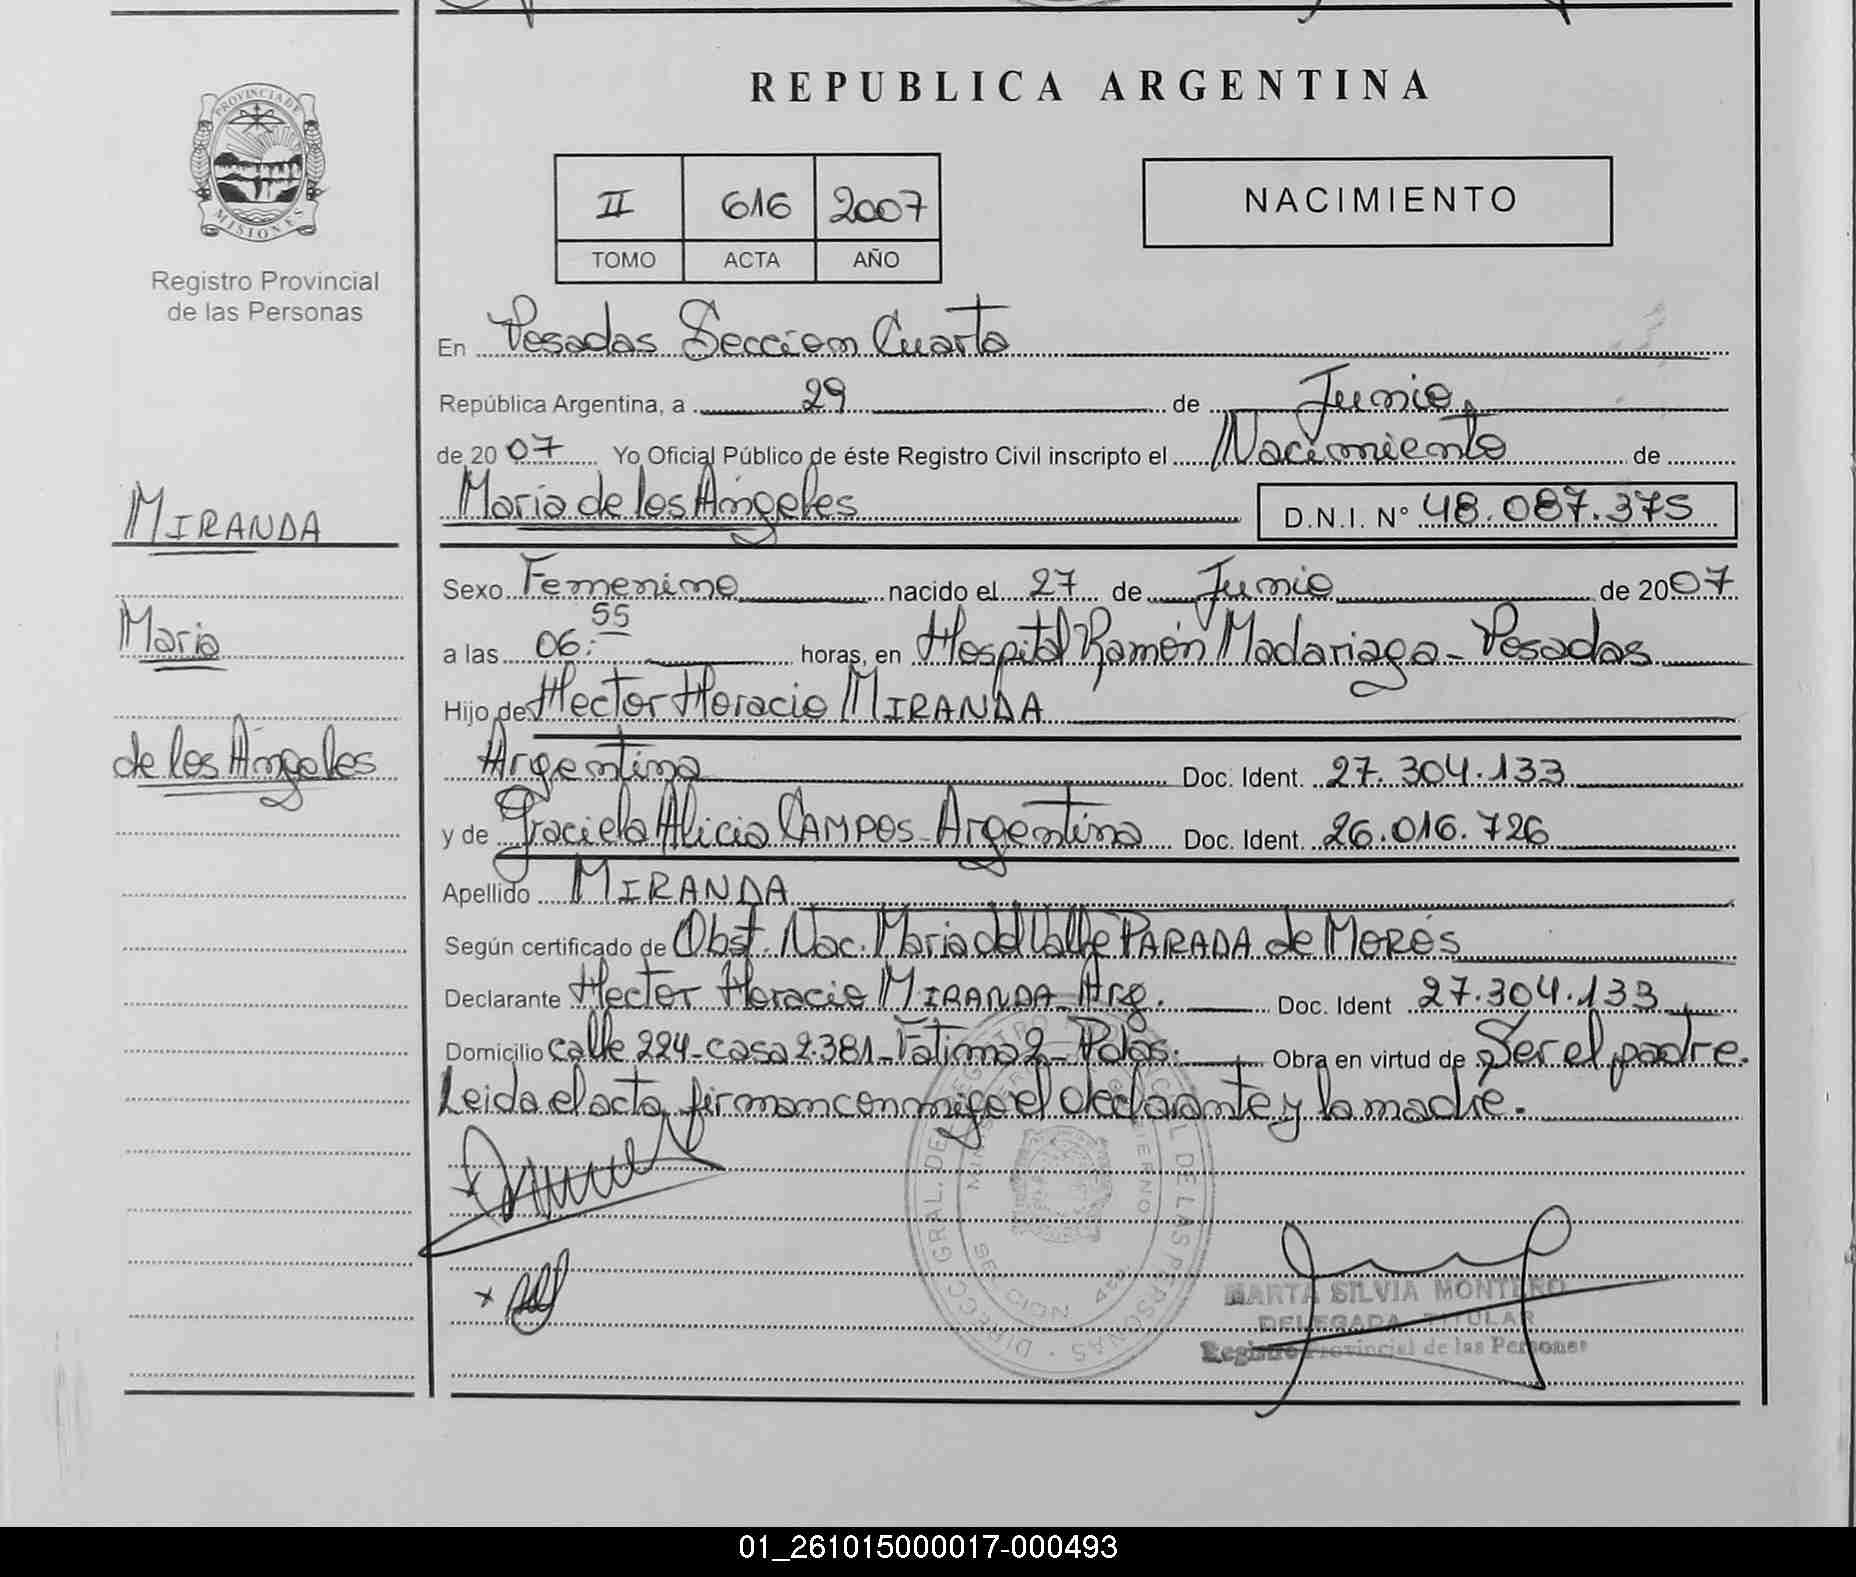 REPUBLICA ARGENTINA
PROVINCIA DE MISIONES
Registro Provincial
de las Personas
II 616 2007
TOMO ACTA AÑO
NACIMIENTO
En Posadas Sección Cuarta
República Argentina, a 29 de Junio
de 2007 Yo Oficial Público de éste Registro Civil inscripto el Nacimiento de
MIRANDA
María de los Ángeles D.N.I. N° 48.087.375
Sexo Femenino nacido el 27 de Junio de 2007
María
a las 06:55 horas, en Hospital Ramón Madariaga - Posadas
Hijo de Hector Horacio MIRANDA
de los Ángeles
Argentina Doc. Ident. 27.304.133
y de Graciela Alicia CAMPOS - Argentina Doc. Ident. 26.016.726
Apellido MIRANDA
Según certificado de Obst. Nac. Maria del Valle PARADA de MORÓS
Declarante Hector Horacio MIRANDA - Arg. Doc. Ident 27.304.133
Domicilio calle 224 - casa 2.381 - Fatima 2 - Pdas. Obra en virtud de Ser el padre.
Leida el acta, firman conmigo el declarante y la madre.
MARTA SILVIA MONTERO
DELEGADA TITULAR
Registro Provincial de las Personas
01_261015000017-000493